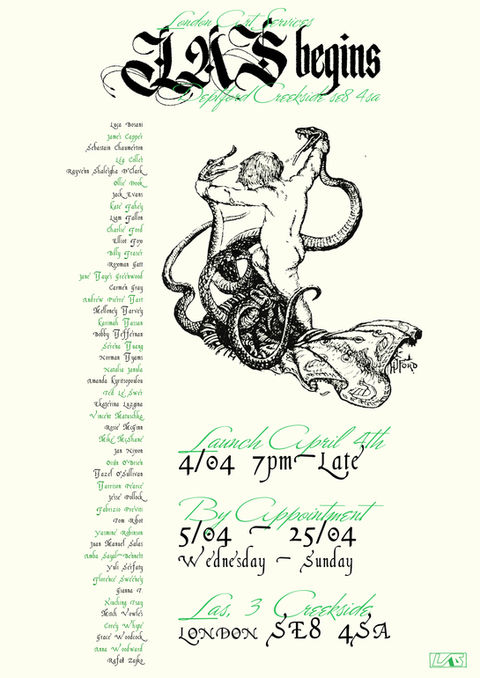 London Art Services
LAS begins
Deptford Creekside se8 4sa
Luca Bosani
James Capper
Sebastian Chaumeton
Léa Collet
Rayvenn Shaleigha D'Clark
Ollie Dook
Jack Evans
Kate Fahey
Liam Fallon
Charlie Good
Elliot
Billy Fraser
Roxman Gatt
Jane Hayes Greenwood
Carmen Gray
Andrew Pierre Hart
Melloney Harvey
Kasmah Hassan
Bobby Heffernan
Serena Huang
Norman Hyams
Natalia Janula
Amanda Kyritsopoulou
Ted Le Swer
Ekaterina Luzgina
Vincent Matuschka
Rosie McGinn
Mike McShane
Jan Nixon
Oisín O'Brien
Hazel O'Sullivan
Harrison Pearce
Jesse Pollock
Fabrizio Previti
Tom Ribot
Yasmine Robinson
Juan Manuel Salas
Amba Sayal-Bennett
Yuli Serfaty
Florence Sweeney
Gianna T
Kinching Tsay
Mitch Vowles
Corey Whyte
Grace Woodcock
Anna Woodward
Rafał Zajko
Launch April 4th
4/04 7pm-Late
By Appointment
5/04 - 25/04
Wednesday - Sunday
Las, 3 Creekside,
LONDON SE8 4SA
LAS